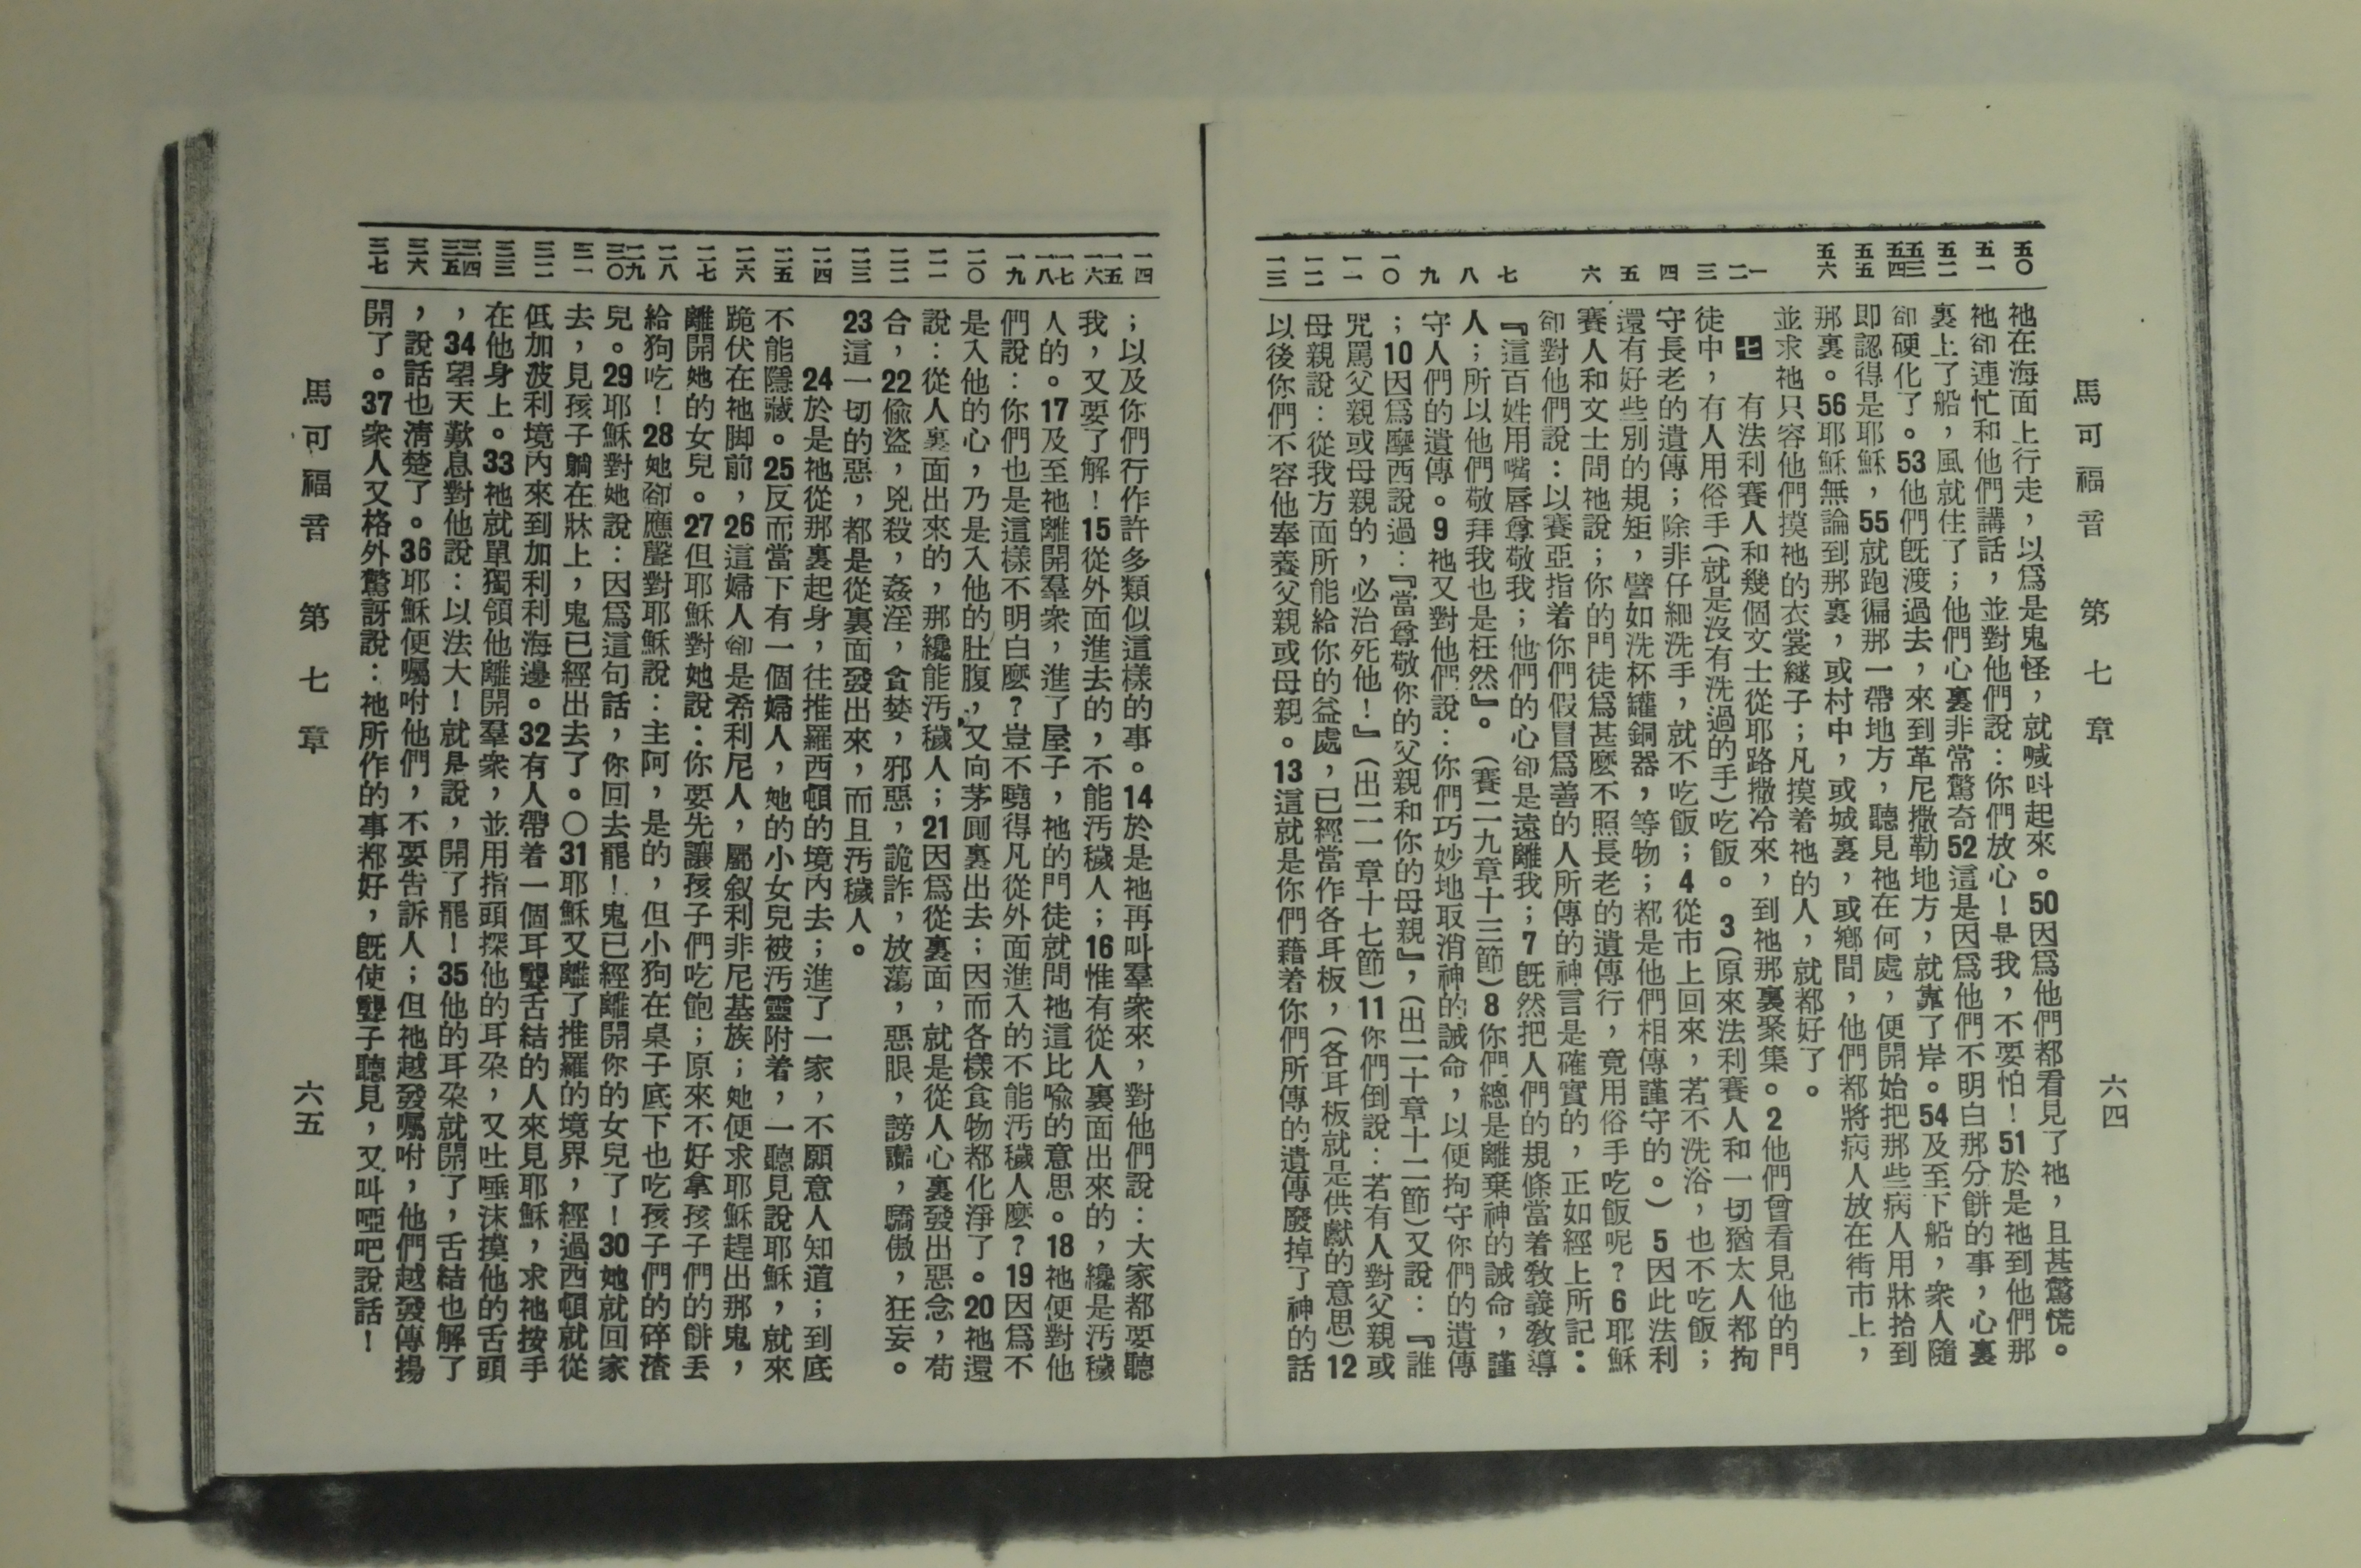 馬可福音 第七章 六四
五〇 五一 五二 五三 五四 五五 五六 一 二 三 四 五 六 七 八 九 一〇 一一 一二 一三
祂在海面上行走，以爲是鬼怪，就喊呌起來。50因爲他們都看見了祂，且甚驚慌。
祂卻連忙和他們講話，並對他們說：你們放心！是我，不要怕！51於是祂到他們那
裏上了船，風就住了；他們心裏非常驚奇52這是因爲他們不明白那分餅的事，心裏
卻硬化了。53他們旣渡過去，來到革尼撒勒地方，就靠了岸。54及至下船，衆人隨
即認得是耶穌，55就跑徧那一帶地方，聽見祂在何處，便開始把那些病人用牀抬到
那裏。56耶穌無論到那裏，或村中，或城裏，或鄉間，他們都將病人放在街市上，
並求祂只容他們摸祂的衣裳繸子；凡摸着祂的人，就都好了。
七 有法利賽人和幾個文士從耶路撒冷來，到祂那裏聚集。2他們曾看見他的門
徒中，有人用俗手（就是沒有洗過的手）吃飯。3（原來法利賽人和一切猶太人都拘
守長老的遺傳；除非仔細洗手，就不吃飯；4從市上回來，若不洗浴，也不吃飯；
還有好些別的規矩，譬如洗杯罐銅器，等物；都是他們相傳謹守的。）5因此法利
賽人和文士問祂說；你的門徒爲甚麼不照長老的遺傳行，竟用俗手吃飯呢？6耶穌
卻對他們說：以賽亞指着你們假冒爲善的人所傳的神言是確實的，正如經上所記：
『這百姓用嘴唇尊敬我；他們的心卻是遠離我；7旣然把人們的規條當着敎義敎導
人；所以他們敬拜我也是枉然』。（賽二九章十三節）8你們總是離棄神的誡命，謹
守人們的遺傳。9祂又對他們說：你們巧妙地取消神的誡命，以便拘守你們的遺傳
；10因爲摩西說過：『當尊敬你的父親和你的母親』，（出二十章十二節）又說：『誰
咒罵父親或母親的，必治死他！』（出二一章十七節）11你們倒說：若有人對父親或
母親說：從我方面所能給你的益處，已經當作各耳板，（各耳板就是供獻的意思）12
以後你們不容他奉養父親或母親。13這就是你們藉着你們所傳的遺傳廢掉了神的話
一四 一五 一六 一七 一八 一九 二〇 二一 二二 二三 二四 二五 二六 二七 二八 二九 三〇 三一 三二 三三 三四 三五 三六 三七
；以及你們行作許多類似這樣的事。14於是祂再叫羣衆來，對他們說：大家都要聽
我，又要了解！15從外面進去的，不能汚穢人；16惟有從人裏面出來的，纔是汚穢
人的。17及至祂離開羣衆，進了屋子，祂的門徒就問祂這比喻的意思。18祂便對他
們說：你們也是這樣不明白麼？豈不曉得凡從外面進入的不能汚穢人麼？19因爲不
是入他的心，乃是入他的肚腹，又向茅厠裏出去；因而各樣食物都化淨了。20祂還
說：從人裏面出來的，那纔能汚穢人；21因爲從裏面，就是從人心裏發出惡念，苟
合，22偷盜，兇殺，姦淫，貪婪，邪惡，詭詐，放蕩，惡眼，謗讟，驕傲，狂妄。
23這一切的惡，都是從裏面發出來，而且汚穢人。
24於是祂從那裏起身，往推羅西頓的境內去；進了一家，不願意人知道；到底
不能隱藏。25反而當下有一個婦人，她的小女兒被汚靈附着，一聽見說耶穌，就來
跪伏在祂脚前，26這婦人卻是希利尼人，屬叙利非尼基族；她便求耶穌趕出那鬼，
離開她的女兒。27但耶穌對她說：你要先讓孩子們吃飽；原來不好拿孩子們的餅丟
給狗吃！28她卻應聲對耶穌說：主阿，是的，但小狗在桌子底下也吃孩子們的碎渣
兒。29耶穌對她說：因爲這句話，你回去罷！鬼已經離開你的女兒了！30她就回家
去，見孩子躺在牀上，鬼已經出去了。〇31耶穌又離了推羅的境界，經過西頓就從
低加波利境內來到加利利海邊。32有人帶着一個耳聾舌結的人來見耶穌，求祂按手
在他身上。33祂就單獨領他離開羣衆，並用指頭探他的耳朶，又吐唾沫摸他的舌頭
，34望天歎息對他說：以法大！就是說，開了罷！35他的耳朶就開了，舌結也解了
，說話也淸楚了。36耶穌便囑咐他們，不要告訴人；但祂越發囑咐，他們越發傳揚
開了。37衆人又格外驚訝說：祂所作的事都好，旣使聾子聽見，又叫啞吧說話！
馬可福音 第七章 六五